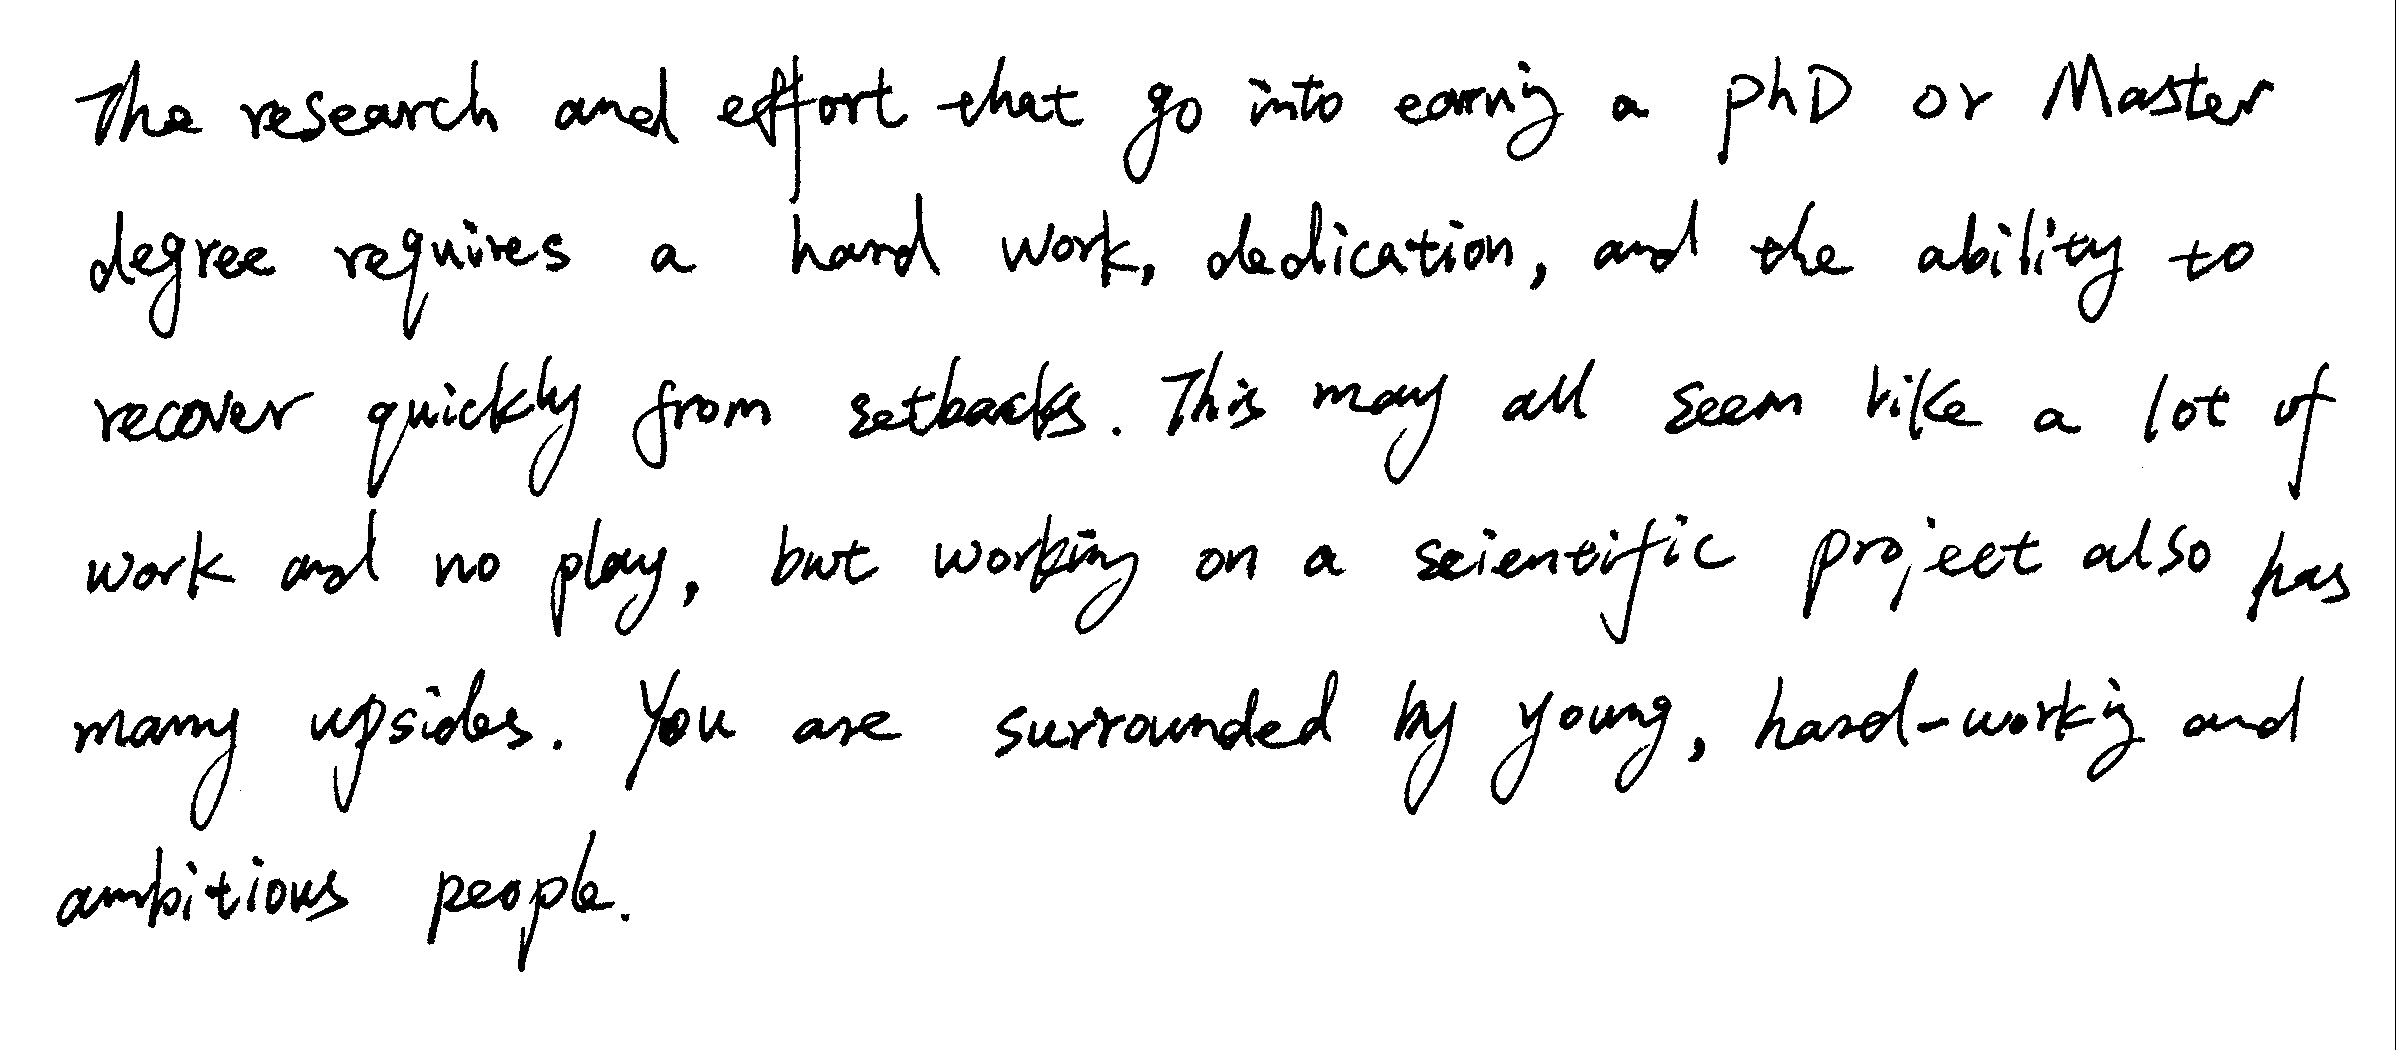 The research and effort that go into earning a phD or Master
degree requires a hard work, dedication, and the ability to
recover quickly from setbacks. This may all seem like a lot of
work and no play, but working on a scientific project also has
many upsides. You are surrounded by young, hard-working and
ambitious people.